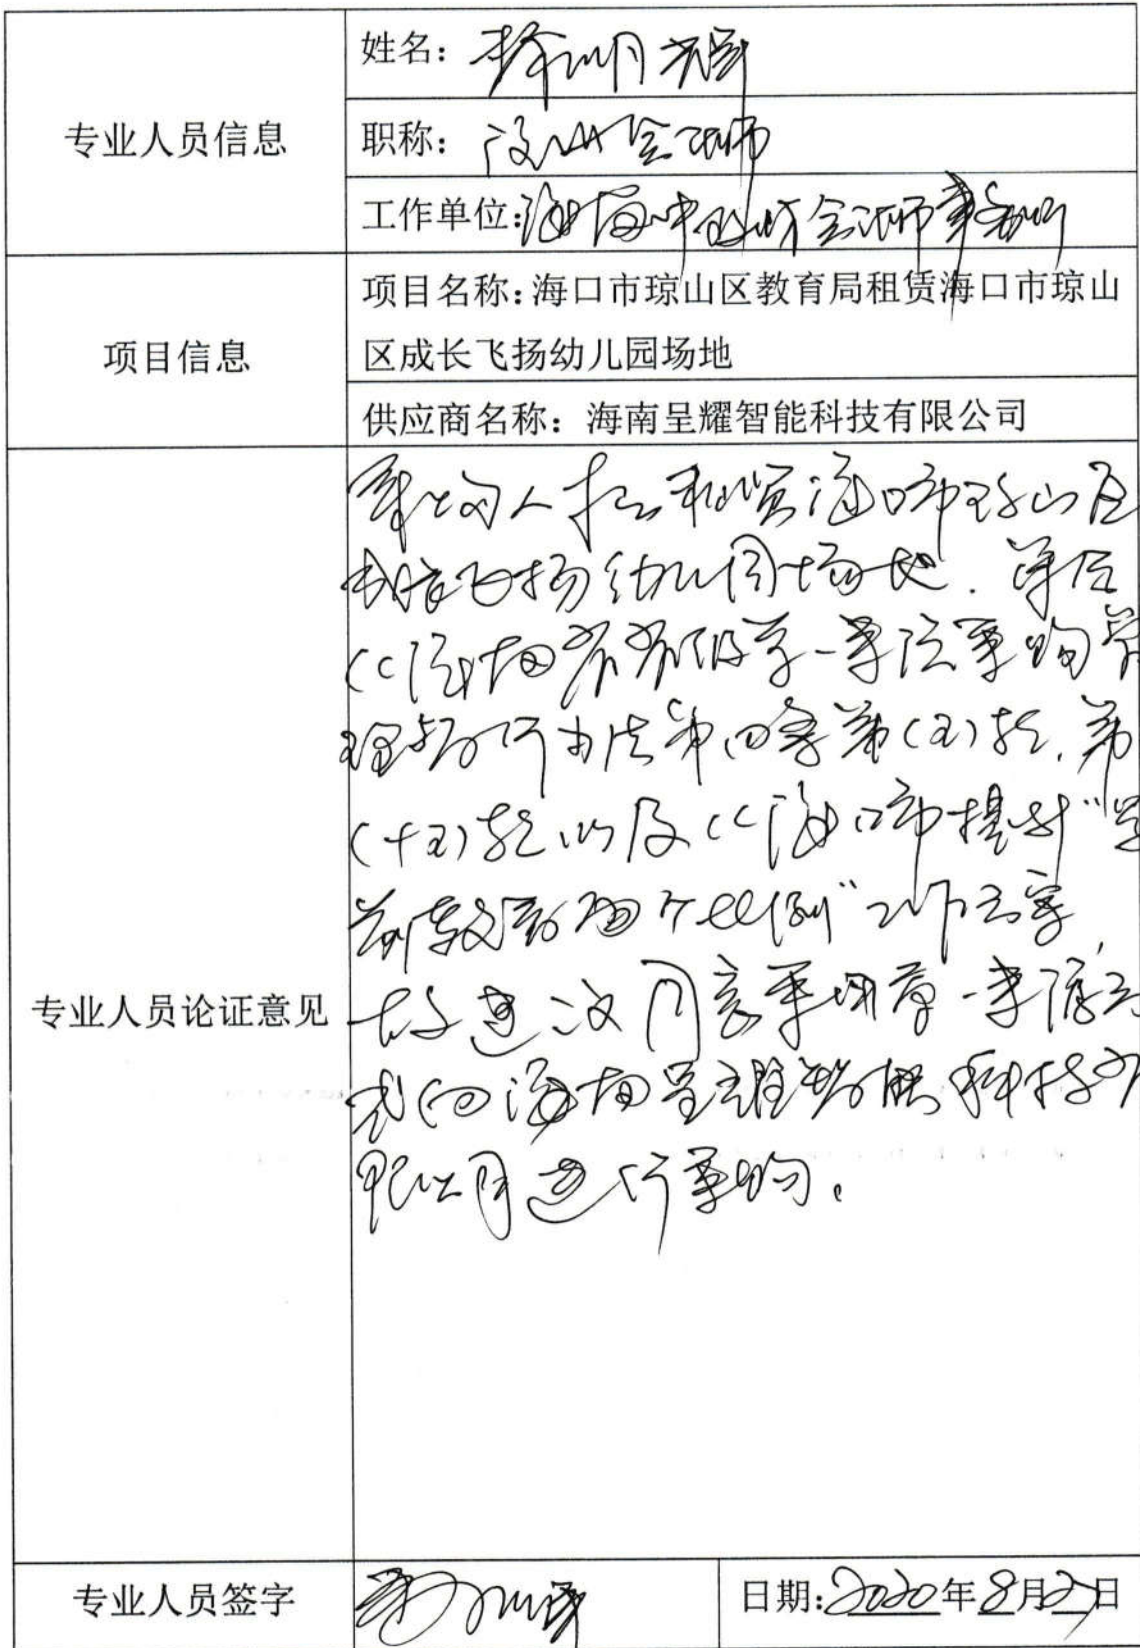 专业人员信息
姓名：
职称： 会计师
工作单位：海南中 会计师事务所
项目信息
项目名称：海口市琼山区教育局租赁海口市琼山
区成长飞扬幼儿园场地
供应商名称：海南呈耀智能科技有限公司
专业人员论证意见
采购人 租赁海口市琼山区
成长飞扬幼儿园场地．符合
《海南省省级单一来源采购管
理暂行办法第四条第（五）款、第
（十五）款以及《海口市提升“学
前教育两个比例”工作方案，
故建议同意采用单一来源方
式向海南呈耀智能科技有
限公司进行采购。
专业人员签字
日期：2020年8月2日